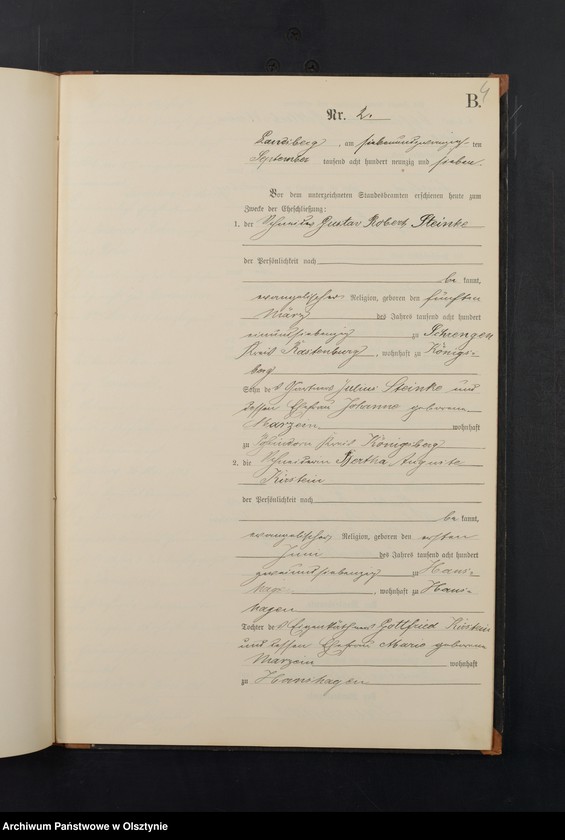 B. 4
Nr. 2.
Landsberg, am siebenundzwanzigsten
September tausend acht hundert neunzig und sieben.
Vor dem unterzeichneten Standesbeamten erschienen heute zum
Zwecke der Eheschließung:
1. der Schneider Gustav Robert Steinke
der Persönlichkeit nach
be kannt,
evangelischer Religion, geboren den fünften
März des Jahres tausend acht hundert
einundsiebenzig zu
Kreis Rastenburg, wohnhaft zu Königs-
berg
Sohn des Julius Steinke und
dessen Ehefrau Johanne geborene
Marzein wohnhaft
zu Kreis Königsberg
2. die Schneiderin Bertha Auguste
Kirstein
der Persönlichkeit nach
be kannt,
evangelischer Religion, geboren den ersten
Juni des Jahres tausend acht hundert
zweiundsiebenzig zu Hans-
hagen, wohnhaft zu Hans-
hagen
Tochter des Eigenkäthners Gottfried Kirstein
und dessen Ehefrau Marie geborene
Marzein wohnhaft
zu Hanshagen
Archiwum Państwowe w Olsztynie